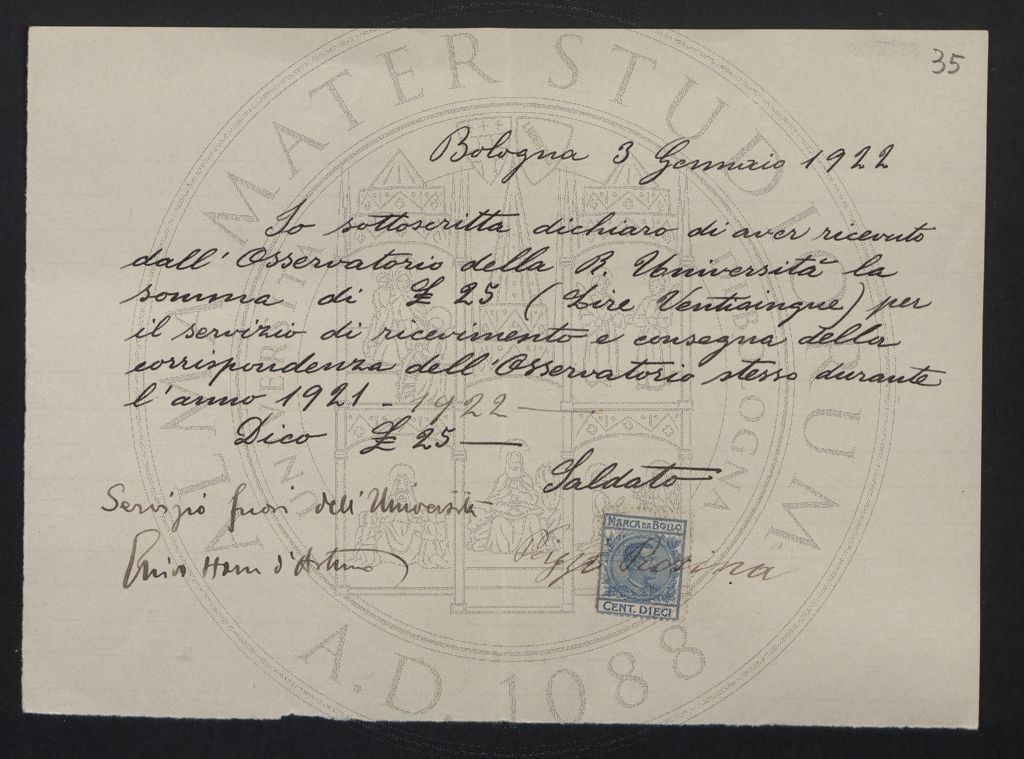 35
Bologna 3 Gennaio 1922
Io sottoscritta dichiaro di aver ricevuto
dall'Osservatorio della R. Università la
somma di £ 25 (Lire Venticinque) per
il servizio di ricevimento e consegna della
corrispondenza dell'Osservatorio stesso durante
l'anno 1921 - 1922 —
Dico £ 25 —
Saldato
Servizio fuori dell'Università
Rosina
MARCA DA BOLLO
CENT. DIECI
ALMA MATER STUDIORUM
A.D. 1088